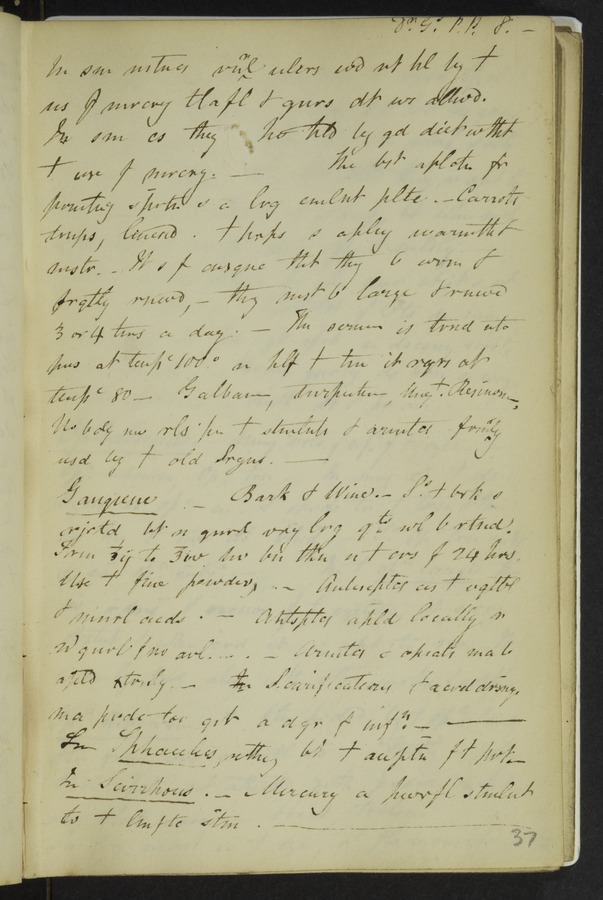 Dr. G's P.P. 8. —
In sm instncs venl ulcrs wd nt hl by t
us of mrcry tt afl t gurs dt ws allwd.
In sm cs they hd by gd diet witht
t use of mrcry. — The bst aplctn fr
is a lrg emlnt pltc. — Carrots
turnps, linseed. t hrps s aply warmtht
mstr. — It s f cnsqnc tht thy b wrm &
frqtly rnwd, — thy mst b large & rnwd
3 or 4 tms a day. — The serum is trnd nto
pus at tempe 100° n hlf t tm it rqrs at
tempe 80 — Galbanum, turpentine, Ungt. Resinos —
No bdy nw rls pn t stmlnts & frmly
usd by t old Srgns. —
Gangrene — Bark & Wine. — Sts t brk s
rjctd bt n gnrl vry lrg qts wl b rtnd.
From ʒij to ʒiv hv bn tkn n t crs f 24 hrs.
Use t fine powder, — Antiseptcs as t vgtbl
& minrl acids. — Antsptcs apld locally r
n gnrl f no avl. — — & opiats ma b
apld xtrnly. — Scarifications & acrid drsngs
ma prdc too grt a dgr f inflmn. —
In Sphacelus, nothng bt t amptn f t prt. —
In Scirrhous. — Mercury a pwrfl stmlnt
to t lmptc stm. —
37